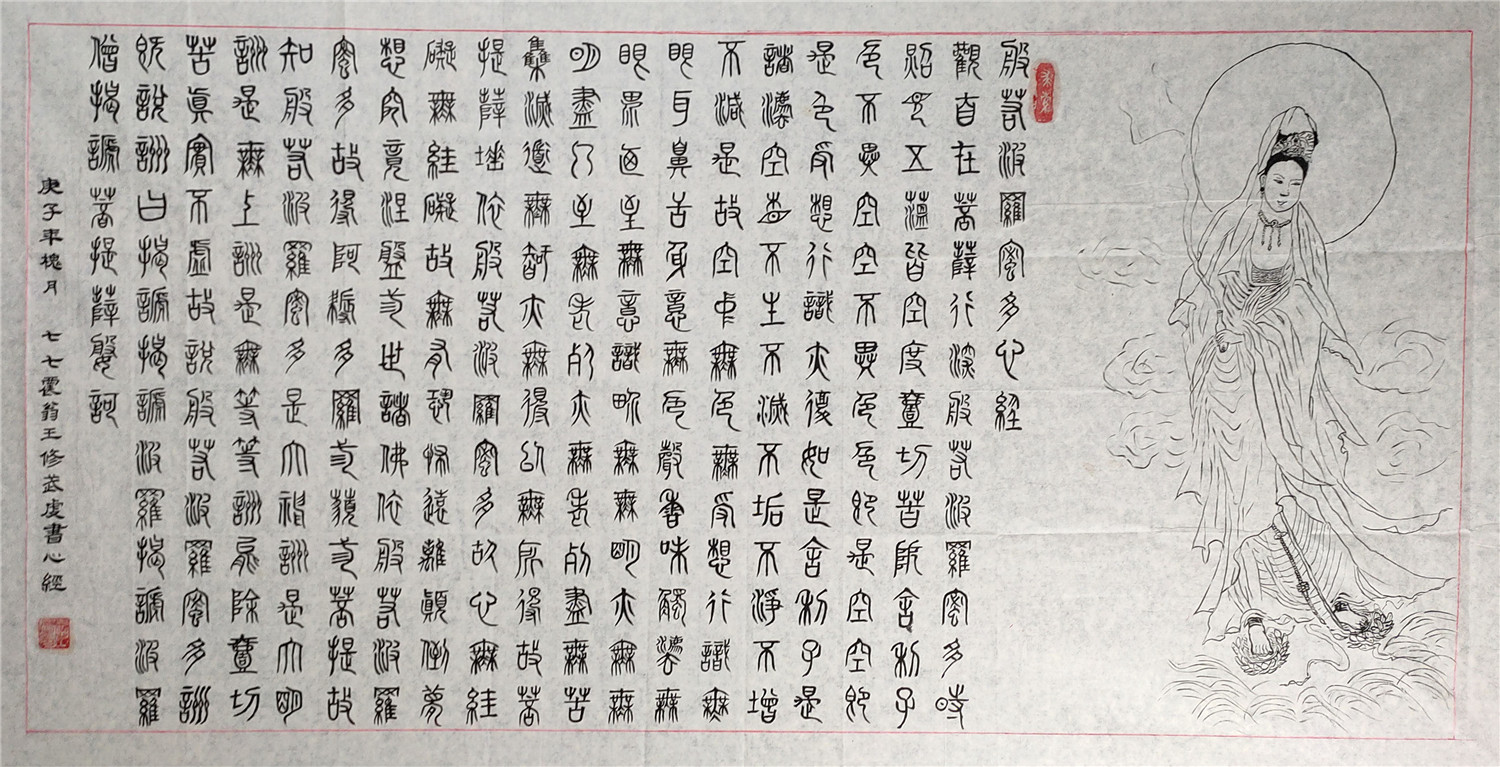 般若波羅蜜多心經
觀自在菩薩行深般若波羅蜜多時
照見五蘊皆空度壹切苦厄舍利子
色不異空空不異色色即是空空即
是色受想行識亦復如是舍利子是
諸法空相不生不滅不垢不淨不增
不減是故空中無色無受想行識無
眼耳鼻舌身意無色聲香味觸法無
眼界乃至無意識界無無明亦無無
明盡乃至無老死亦無老死盡無苦
集滅道無智亦無得以無所得故菩
提薩埵依般若波羅蜜多故心無罣
礙無罣礙故無有恐怖遠離顛倒夢
想究竟涅盤三世諸佛依般若波羅
蜜多故得阿耨多羅三藐三菩提故
知般若波羅蜜多是大神詶是大明
詶是無上詶是無等等詶能除壹切
苦真實不虛故說般若波羅蜜多詶
既說詶曰揭諦揭諦波羅揭諦波羅
僧揭諦菩提薩婆訶
庚子年槐月 七七翁王修武虔書心經